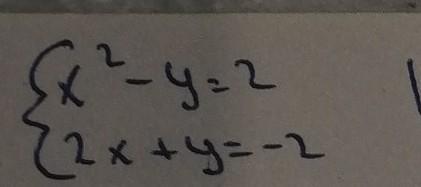 x² - y = 2
2x + y = -2